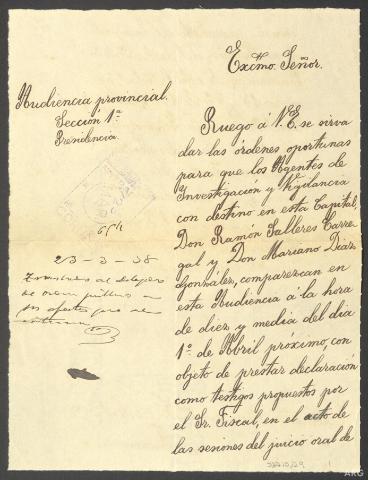 Excmo. Señor.
Audiencia provincial.
Sección 1ª
Presidencia.
23-3-38
Ruego á V.E. se sirva
dar las órdenes oportunas
para que los Agentes de
Investigación y Vigilancia
con destino en esta Capital,
Don Ramón Salleres Carre-
gal y Don Mariano Díaz
González, comparezcan en
esta Audiencia á la hora
de diez y media del día
1º de Abril próximo con
objeto de prestar declaración
como testigos propuestos por
el Sr. Fiscal, en el acto de
las sesiones del juicio oral de
ARG